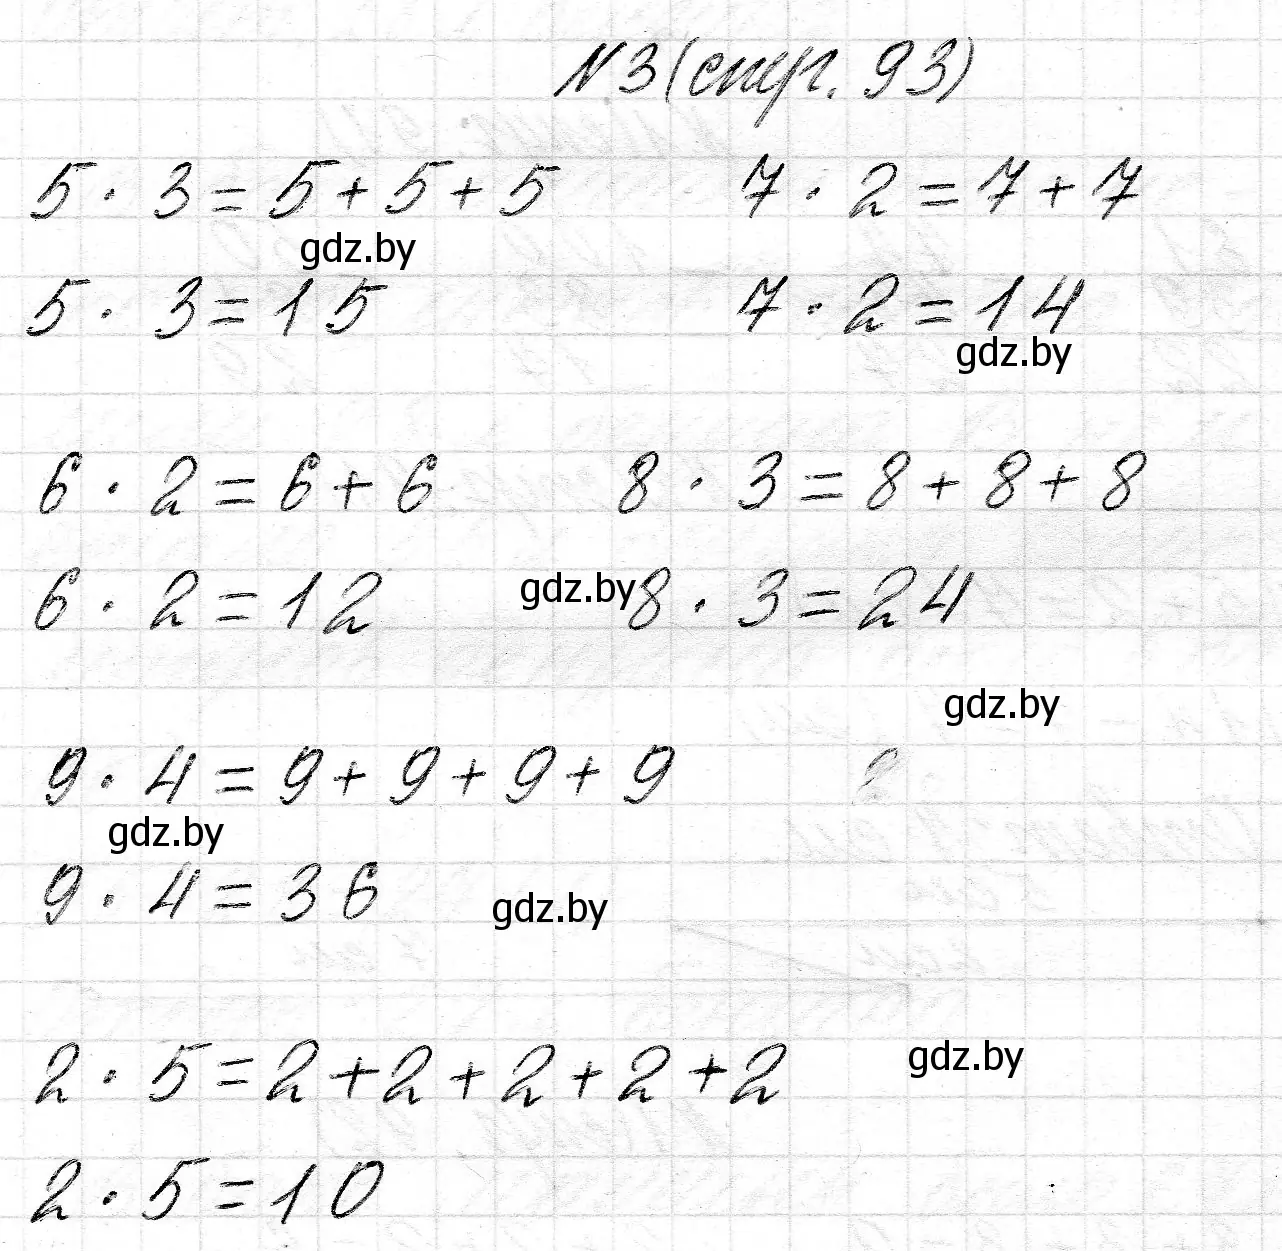 № 3 (стр. 93)
5 · 3 = 5 + 5 + 5 7 · 2 = 7 + 7
gdz.by
5 · 3 = 15 7 · 2 = 14
gdz.by
6 · 2 = 6 + 6 8 · 3 = 8 + 8 + 8
6 · 2 = 12 gdz.by 8 · 3 = 24
gdz.by
9 · 4 = 9 + 9 + 9 + 9
gdz.by
9 · 4 = 36 gdz.by
2 · 5 = 2 + 2 + 2 + 2 + 2 gdz.by
2 · 5 = 10